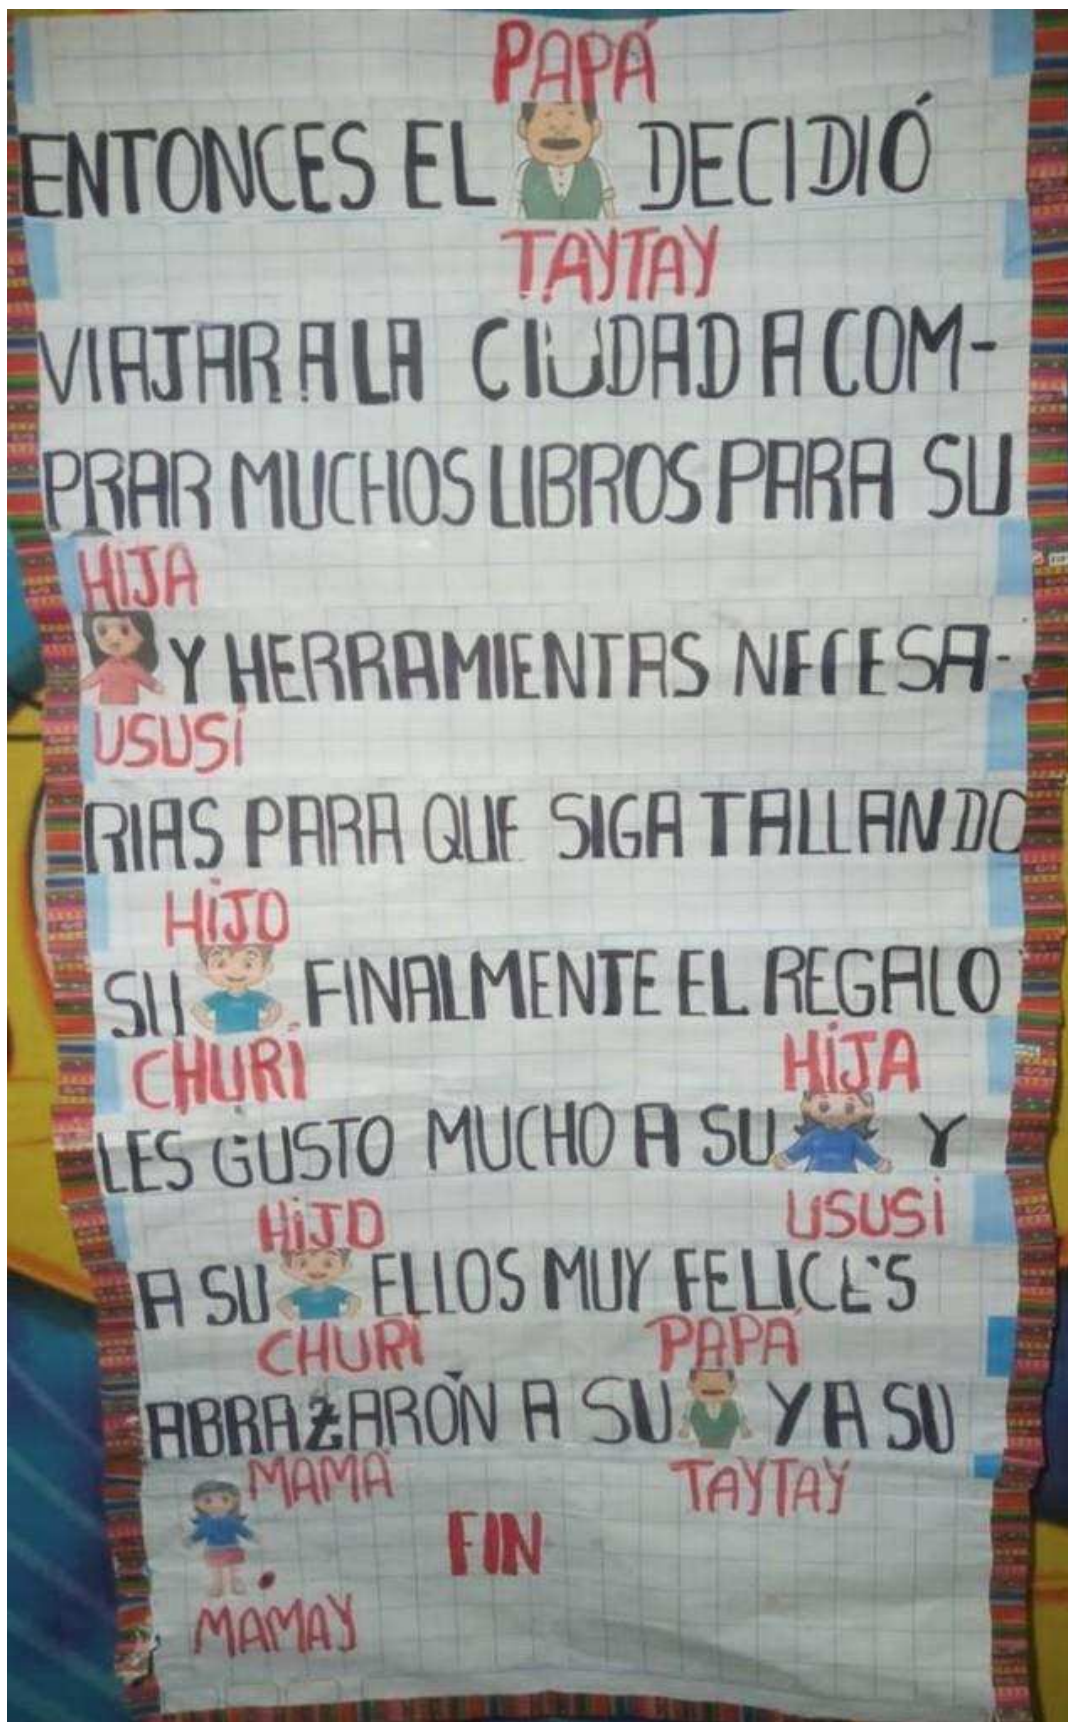 PAPÁ
ENTONCES EL DECIDIÓ
TAYTAY
VIAJAR A LA CIUDAD A COM-
PRAR MUCHOS LIBROS PARA SU
HIJA
Y HERRAMIENTAS NECESA-
USUSI
RIAS PARA QUE SIGA TALLANDO
HIJO
SU FINALMENTE EL REGALO
CHURI HIJA
LES GUSTO MUCHO A SU Y
HIJO USUSI
A SU ELLOS MUY FELICES
CHURI PAPÁ
ABRAZARÓN A SU Y A SU
MAMA TAYTAY
FIN
MAMAY